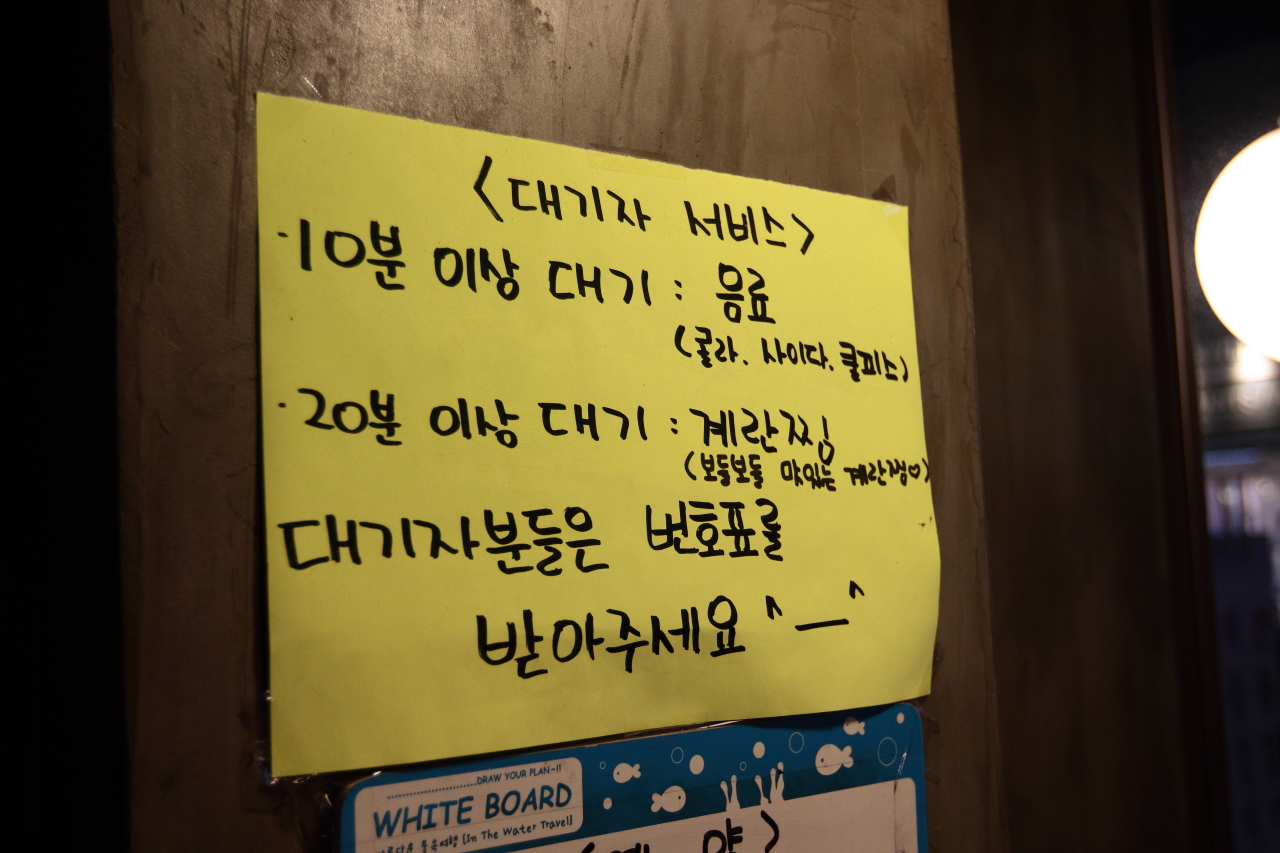 <대기자 서비스>
·10분 이상 대기 : 음료
(콜라. 사이다. 쿨피스)
·20분 이상 대기 : 계란찜
(보들보들 맛있는 계란찜♡)
대기자분들은 번호표를
받아주세요 ^ㅡ^
DRAW YOUR PLAN~!!
WHITE BOARD
물속여행 [In The Water Travel]